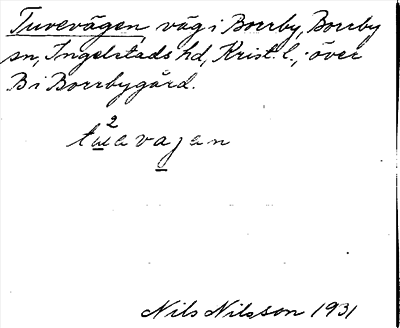 Tuvevägen väg i Borrby, Borrby
sn, Ingelstads hd, Krist. l., över
B i Borrbygård.
Nils Nilsson 1931